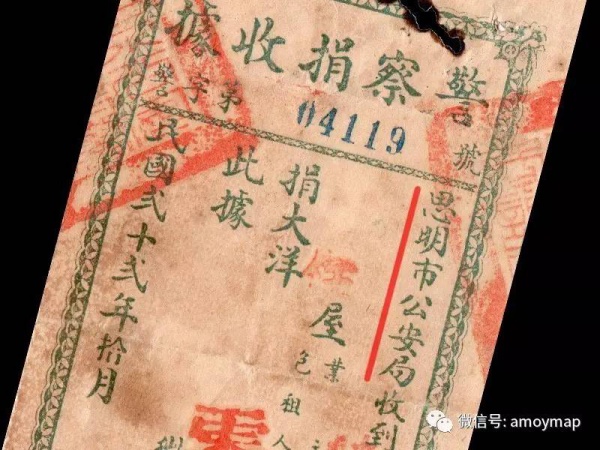 警察捐收據
警字第 04119 號
思明市公安局收到
住屋
業
包租人
捐大洋
零
此據
民國弍十弍年拾月
微信号: amoymap